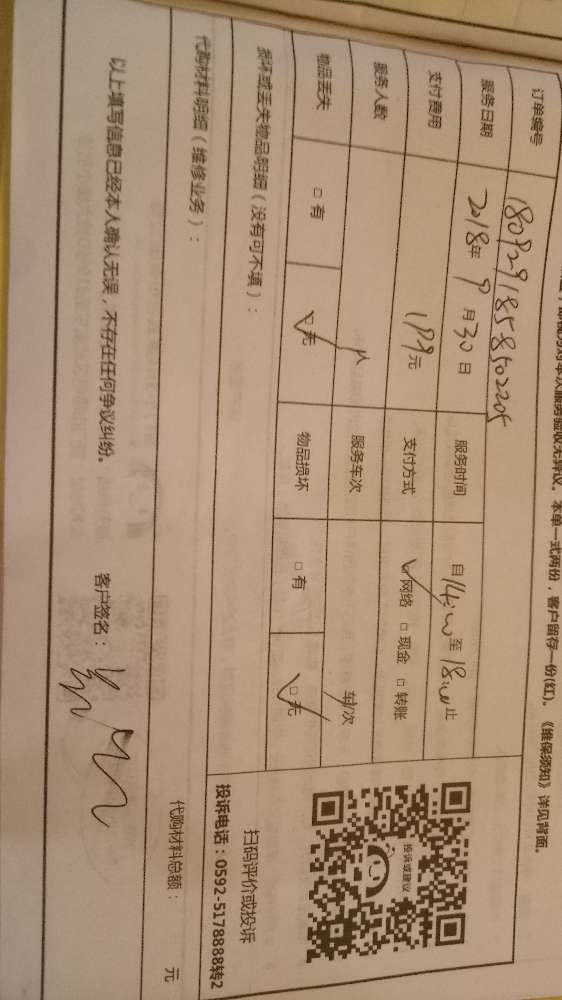 对本次服务验收无异议。本单一式两份，客户留存一份(红)。《维保须知》详见背面。
订单编号 1809291858502205
服务日期 2018年9月30日 服务时间 自14:00至18:00止
支付费用 元 支付方式 网络 □ 现金 □ 转账
服务人数 服务车次 车/次
物品丢失 □ 有 □ 无 物品损坏 □ 有 □ 无
投诉或建议
扫码评价或投诉
投诉电话：0592-5178888转2
损坏或丢失物品明细（没有可不填）：
代购材料明细（维修业务）： 代购材料总额： 元
以上填写信息已经本人确认无误，不存在任何争议纠纷。 客户签名：